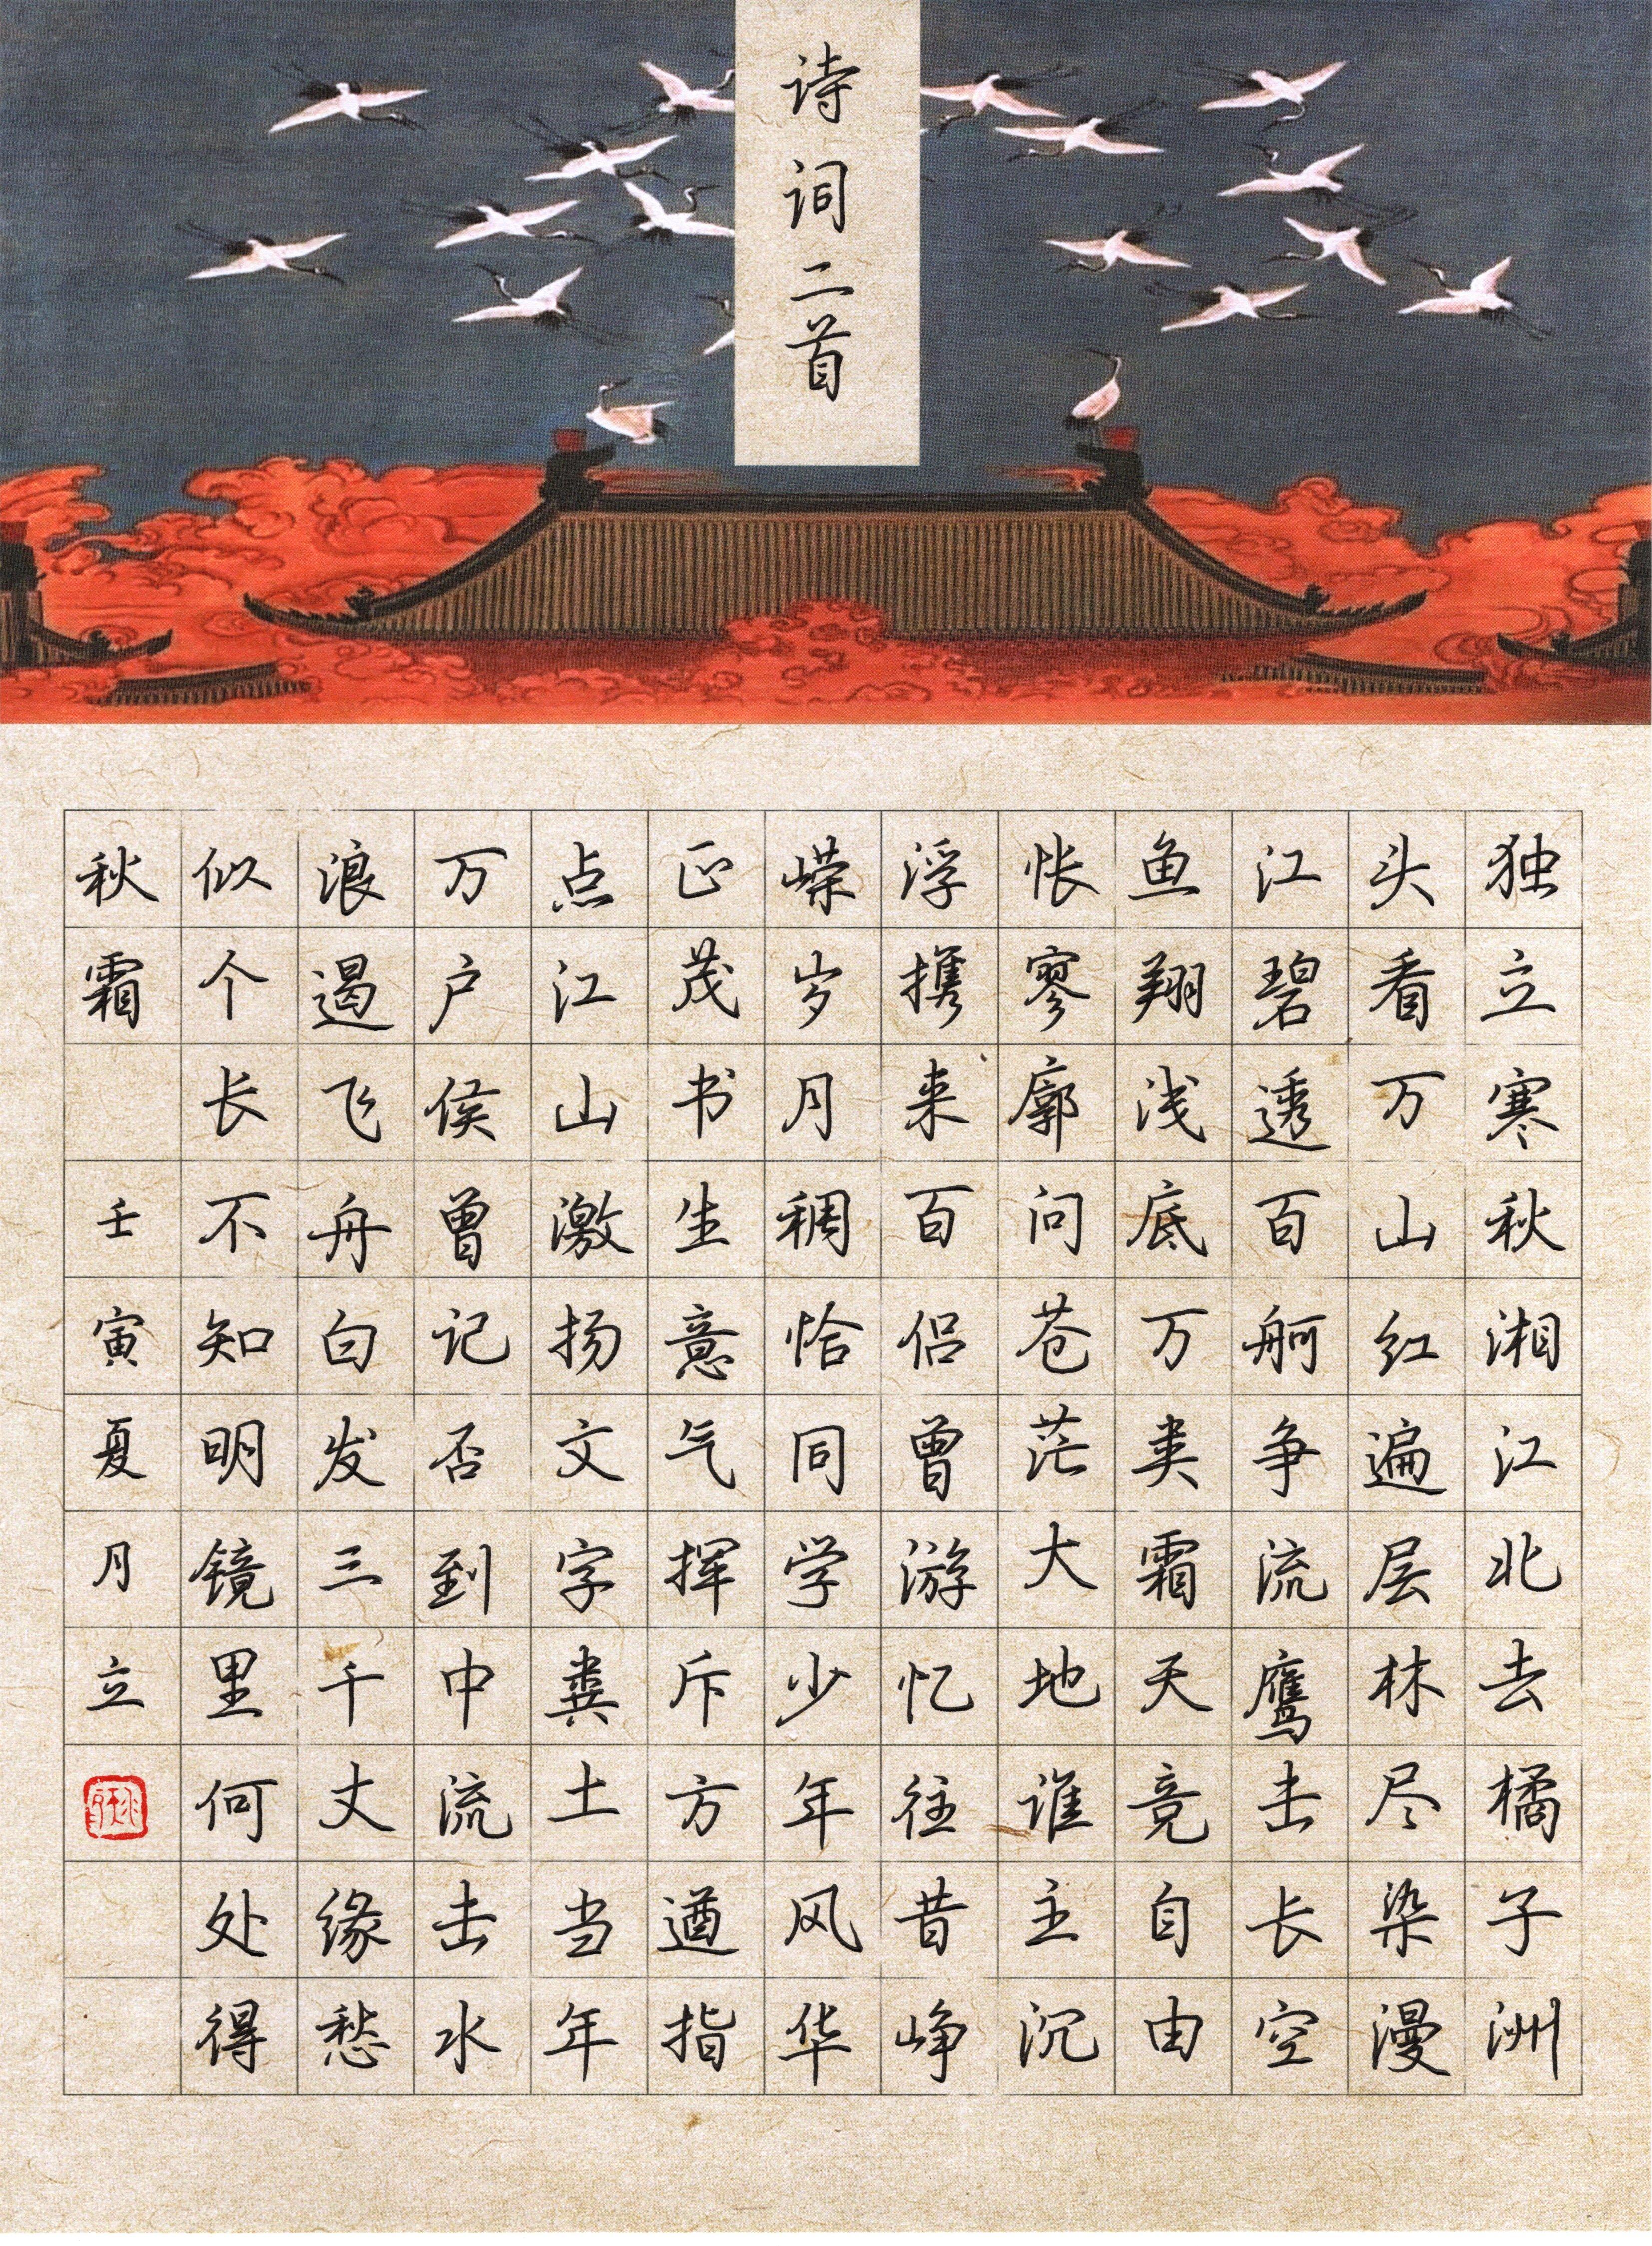 诗词二首
独立寒秋湘江北去橘子洲
头看万山红遍层林尽染漫
江碧透百舸争流鹰击长空
鱼翔浅底万类霜天竞自由
怅寥廓问苍茫大地谁主沉
浮携来百侣曾游忆往昔峥
嵘岁月稠恰同学少年风华
正茂书生意气挥斥方遒指
点江山激扬文字粪土当年
万户侯曾记否到中流击水
浪遏飞舟白发三千丈缘愁
似个长不知明镜里何处得
秋霜 壬寅夏月立